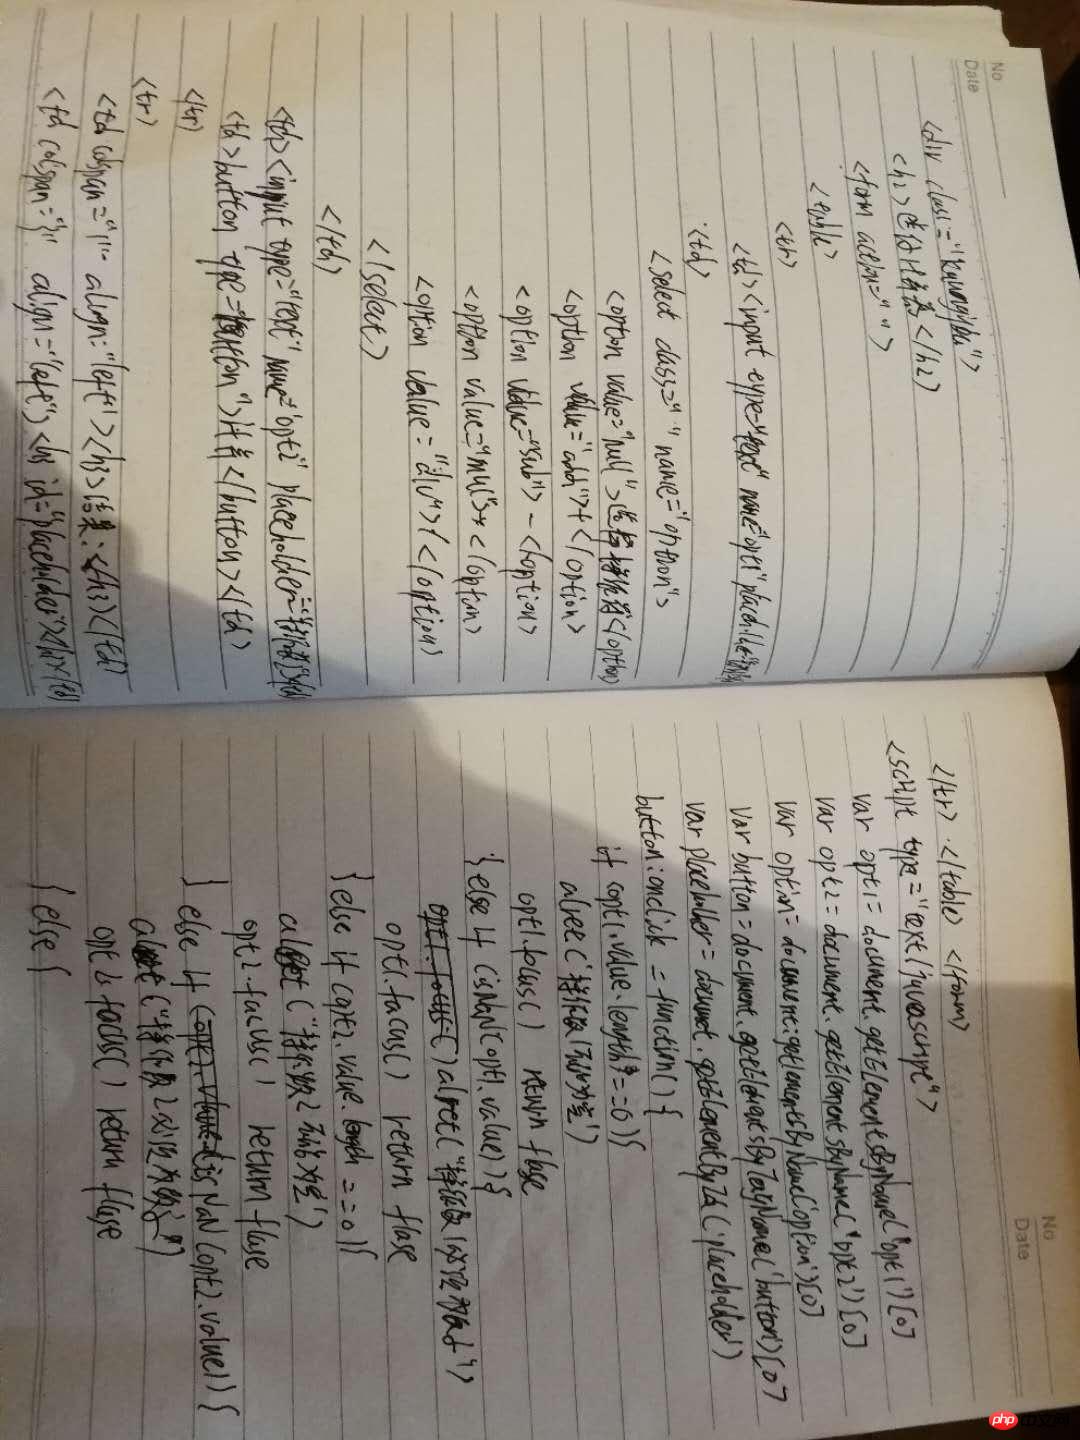 No
Date
<div class="kuangjia">
<h2> 迷你计算器 </h2>
<form action=" ">
<table>
<tr>
<td><input type="text" name="opt1" placeholder=
<td>
<select class=" " name="option">
<option value="null">选择操作符</option>
<option value="add">+</option>
<option value="sub">-</option>
<option value="mul">*</option>
<option value="div">/</option>
</select>
</td>
<td><input type="text" name="opt2" placeholder="操作数2"></td>
<td>button type="button">计算</button></td>
</tr>
<tr>
<td colspan="1" align="left"><h3>结果:</h3></td>
<td colspan="3" align="left"><h3 id="placeholder"></h3></td>
No
Date
</tr> </table> </form>
<script type="text/javascript">
var opt1 = document.getElementsByName('opt1')[0]
var opt2 = document.getElementsByName('opt2')[0]
var option = document.getElementsByName('option')[0]
var button = document.getElementsByTagName('button')[0]
var placeholder = document.getElementById('placeholder')
button.onclick = function(){
if (opt1.value.length == 0){
alret('操作数1不能为空')
opt1.focus() return flase
} else if (isNaN(opt1.value)){
alret("操作数1必须为数字")
opt1.focus() return flase
} else if (opt2.value.length == 0){
alret("操作数2不能为空')
opt2.focus() return flase
} else if (isNaN(opt2.value)){
alret("操作数2必须为数字")
opt2.focus() return flase
} else {
php